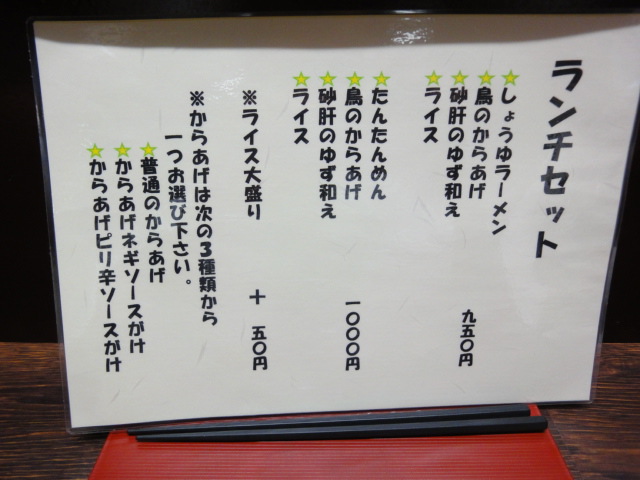 ランチセット
☆しょうゆラーメン
☆鳥のからあげ
☆砂肝のゆず和え 九五〇円
☆ライス
☆たんたんめん
☆鳥のからあげ 一〇〇〇円
☆砂肝のゆず和え
☆ライス
※ライス大盛り + 五〇円
※からあげは次の3種類から
一つお選び下さい。
☆普通のからあげ
☆からあげネギソースがけ
☆からあげピリ辛ソースがけ